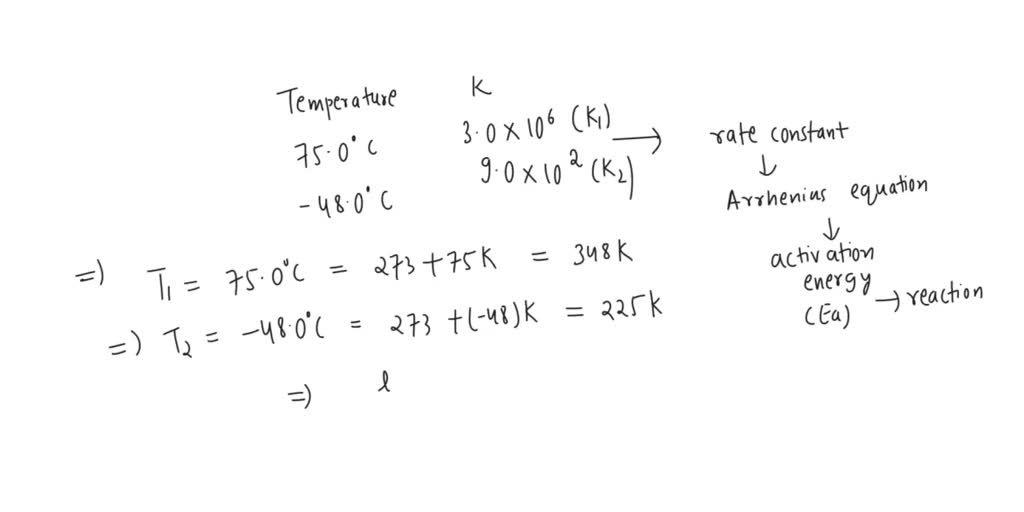 Temperature K
75.0°C 3.0 × 10⁶ (K₁) → rate constant
-48.0°C 9.0 × 10² (K₂) ↓
Arrhenius equation
↓
activation
energy
(Ea) → reaction
=) T₁ = 75.0°C = 273+75K = 348K
=) T₂ = -48.0°C = 273 +(-48)K = 225K
=) l